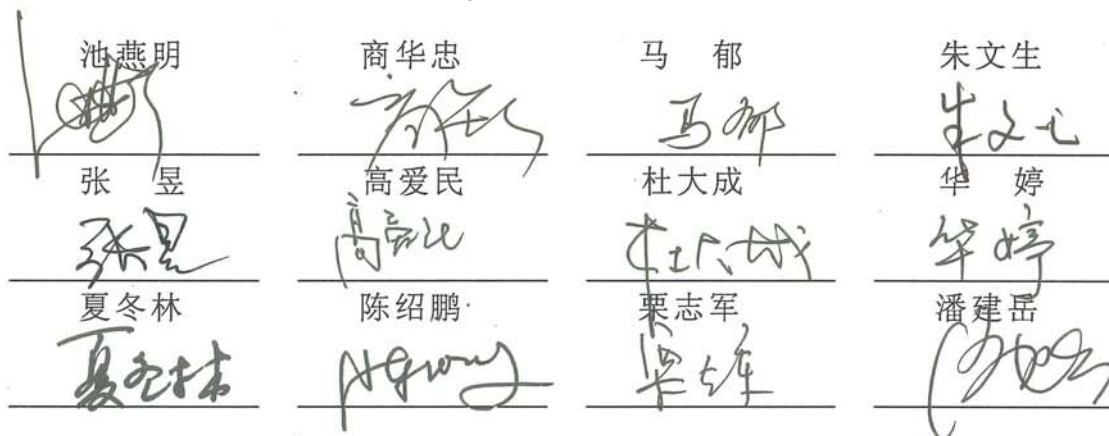 池燕明 商华忠 马 郁 朱文生
马郁 朱文生
张 昱 高爱民 杜大成 华 婷
张昱 高爱民 杜大成 华婷
夏冬林 陈绍鹏 栗志军 潘建岳
夏冬林 栗志军